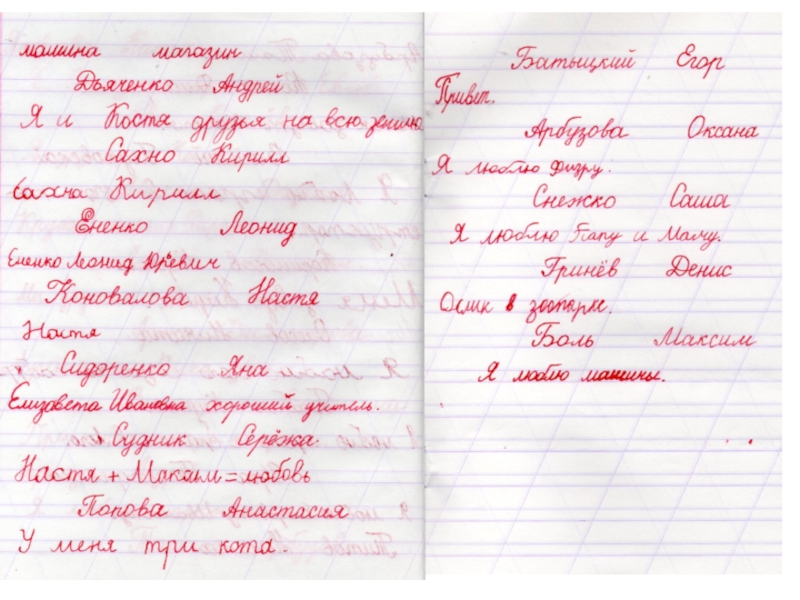 машина магазин
Дьяченко Андрей
Я и Костя друзья на всю землю
Сахно Кирилл
Сахна Кирилл
Ененко Леонид
Ененко Леонид Юревич
Коновалова Настя
Настя
Сидоренко Яна
Елизавета Ивановна хороший учитель.
Судник Серёжа
Настя + Макаим = любовь
Попова Анастасия
У меня три кота.
Батыцкий Егор
Привет.
Арбузова Оксана
Я люблю физру.
Снежко Саша
Я люблю Папу и Маму.
Гринёв Денис
Ослик в зоопарке.
Боль Максим
Я люблю машины.